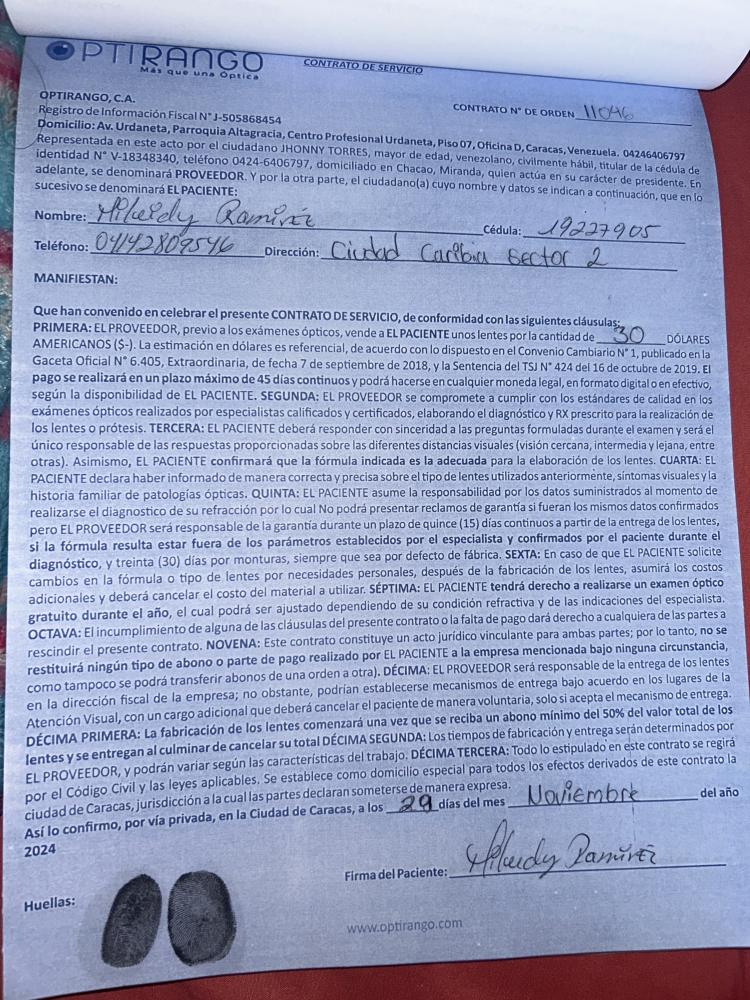 OPTIRANGO
Más que una Óptica
CONTRATO DE SERVICIO
OPTIRANGO, C.A.
CONTRATO N° DE ORDEN 11046
Registro de Información Fiscal N° J-505868454
Domicilio: Av. Urdaneta, Parroquia Altagracia, Centro Profesional Urdaneta, Piso 07, Oficina D, Caracas, Venezuela. 04246406797
Representada en este acto por el ciudadano JHONNY TORRES, mayor de edad, venezolano, civilmente hábil, titular de la cédula de
identidad N° V-18348340, teléfono 0424-6406797, domiciliado en Chacao, Miranda, quien actúa en su carácter de presidente. En
adelante, se denominará PROVEEDOR. Y por la otra parte, el ciudadano(a) cuyo nombre y datos se indican a continuación, que en lo
sucesivo se denominará EL PACIENTE:
Nombre: Hileidy Ramirez Cédula: 19227905
Teléfono: 04142809546 Dirección: Ciudad Caribia sector 2
MANIFIESTAN:
Que han convenido en celebrar el presente CONTRATO DE SERVICIO, de conformidad con las siguientes cláusulas:
PRIMERA: EL PROVEEDOR, previo a los exámenes ópticos, vende a EL PACIENTE unos lentes por la cantidad de 30 DÓLARES
AMERICANOS ($-). La estimación en dólares es referencial, de acuerdo con lo dispuesto en el Convenio Cambiario N° 1, publicado en la
Gaceta Oficial N° 6.405, Extraordinaria, de fecha 7 de septiembre de 2018, y la Sentencia del TSJ N° 424 del 16 de octubre de 2019. El
pago se realizará en un plazo máximo de 45 días continuos y podrá hacerse en cualquier moneda legal, en formato digital o en efectivo,
según la disponibilidad de EL PACIENTE. SEGUNDA: EL PROVEEDOR se compromete a cumplir con los estándares de calidad en los
exámenes ópticos realizados por especialistas calificados y certificados, elaborando el diagnóstico y RX prescrito para la realización de
los lentes o prótesis. TERCERA: EL PACIENTE deberá responder con sinceridad a las preguntas formuladas durante el examen y será el
único responsable de las respuestas proporcionadas sobre las diferentes distancias visuales (visión cercana, intermedia y lejana, entre
otras). Asimismo, EL PACIENTE confirmará que la fórmula indicada es la adecuada para la elaboración de los lentes. CUARTA: EL
PACIENTE declara haber informado de manera correcta y precisa sobre el tipo de lentes utilizados anteriormente, síntomas visuales y la
historia familiar de patologías ópticas. QUINTA: EL PACIENTE asume la responsabilidad por los datos suministrados al momento de
realizarse el diagnostico de su refracción por lo cual No podrá presentar reclamos de garantía si fueran los mismos datos confirmados
pero EL PROVEEDOR será responsable de la garantía durante un plazo de quince (15) días continuos a partir de la entrega de los lentes,
si la fórmula resulta estar fuera de los parámetros establecidos por el especialista y confirmados por el paciente durante el
diagnóstico, y treinta (30) días por monturas, siempre que sea por defecto de fábrica. SEXTA: En caso de que EL PACIENTE solicite
cambios en la fórmula o tipo de lentes por necesidades personales, después de la fabricación de los lentes, asumirá los costos
adicionales y deberá cancelar el costo del material a utilizar. SÉPTIMA: EL PACIENTE tendrá derecho a realizarse un examen óptico
gratuito durante el año, el cual podrá ser ajustado dependiendo de su condición refractiva y de las indicaciones del especialista.
OCTAVA: El incumplimiento de alguna de las cláusulas del presente contrato o la falta de pago dará derecho a cualquiera de las partes a
rescindir el presente contrato. NOVENA: Este contrato constituye un acto jurídico vinculante para ambas partes; por lo tanto, no se
restituirá ningún tipo de abono o parte de pago realizado por EL PACIENTE a la empresa mencionada bajo ninguna circunstancia,
como tampoco se podrá transferir abonos de una orden a otra). DÉCIMA: EL PROVEEDOR será responsable de la entrega de los lentes
en la dirección fiscal de la empresa; no obstante, podrían establecerse mecanismos de entrega bajo acuerdo en los lugares de la
Atención Visual, con un cargo adicional que deberá cancelar el paciente de manera voluntaria, solo si acepta el mecanismo de entrega.
DÉCIMA PRIMERA: La fabricación de los lentes comenzará una vez que se reciba un abono mínimo del 50% del valor total de los
lentes y se entregan al culminar de cancelar su total DÉCIMA SEGUNDA: Los tiempos de fabricación y entrega serán determinados por
EL PROVEEDOR, y podrán variar según las características del trabajo. DÉCIMA TERCERA: Todo lo estipulado en este contrato se regirá
por el Código Civil y las leyes aplicables. Se establece como domicilio especial para todos los efectos derivados de este contrato la
ciudad de Caracas, jurisdicción a la cual las partes declaran someterse de manera expresa.
Así lo confirmo, por vía privada, en la Ciudad de Caracas, a los 29 días del mes Noviembre del año
2024
Firma del Paciente: Hileidy Ramirez
Huellas:
www.optirango.com